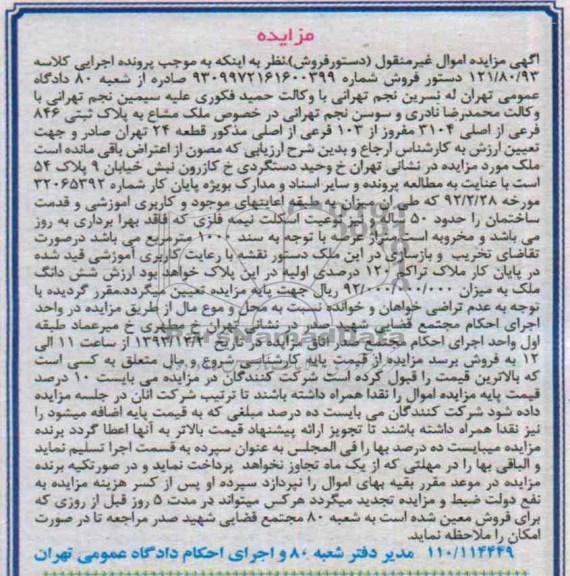 مزایده
آگهی مزایده اموال غیرمنقول (دستورفروش)،نظر به اینکه به موجب پرونده اجرایی کلاسه
۱۲۱/۸۰/۹۳ دستور فروش شماره ۹۳۰۹۹۷۲۱۶۱۶۰۰۳۹۹ صادره از شعبه ۸۰ دادگاه
عمومی تهران له نسرین نجم تهرانی با وکالت حمید فکوری علیه سیمین نجم تهرانی با
وکالت محمدرضا نادری و سوسن نجم تهرانی در خصوص ملک مشاع به پلاک ثبتی ۸۴۶
فرعی از اصلی ۳۱۰۴ مفروز از ۱۰۳ فرعی از اصلی مذکور قطعه ۲۴ تهران صادر و جهت
تعیین ارزش به کارشناس ارجاع و بدین شرح ارزیابی که مصون از اعتراض باقی مانده است
ملک مورد مزایده در نشانی تهران خ وحید دستگردی خ کازرون نبش خیابان ۹ پلاک ۵۴
است با عنایت به مطالعه پرونده و سایر اسناد و مدارک بویژه پایان کار شماره ۳۲۰۶۵۳۹۲
مورخه ۹۲/۲/۲۸ که طی آن میزان به طبقه اعیانهای موجود و کاربری آموزشی و قدمت
ساختمان را حدود ۵۰ ساله و نیز نوعیت اسکلت نیمه فلزی که فاقد بهرا برداری به روز
می باشد و مخروبه است متراژ عرصه با توجه به سند ۱۰۰۰ مترمربع می باشد درصورت
تقاضای تخریب و بازسازی در این ملک دستور نقشه با رعایت کاربری آموزشی قید شده
در پایان کار ملاک تراکم ۱۲۰ درصدی اولیه در این پلاک خواهد بود ارزش شش دانگ
ملک به میزان ۹۲/۰۰۰/۰۰۰/۰۰۰ ریال جهت پایه مزایده تعیین میگردد.مقرر گردیده با
توجه به عدم تراضی خواهان و خوانده نسبت به محل و موع مال از طریق مزایده در واحد
اجرای احکام مجتمع قضایی شهید صدر در نشانی تهران خ مطهری خ میرعماد طبقه
اول واحد اجرای احکام مجتمع صدر اتاق مزایده در تاریخ ۱۳۹۳/۱۲/۲ از ساعت ۱۱ الی
۱۲ به فروش برسد مزایده از قیمت پایه کارشناسی شروع و مال متعلق به کسی است
که بالاترین قیمت را قبول کرده است شرکت کنندگان در مزایده می بایست ۱۰ درصد
قیمت پایه مزایده اموال را نقدا همراه داشته باشند تا ترتیب شرکت آنان در جلسه مزایده
داده شود شرکت کنندگان می بایست ده درصد مبلغی که به قیمت پایه اضافه میشود را
نیز نقدا همراه داشته باشند تا تجویز ارائه پیشنهاد قیمت بالاتر به آنها اعطا گردد برنده
مزایده میبایست ده درصد بها را فی المجلس به عنوان سپرده به قسمت اجرا تسلیم نماید
و الباقی بها را در مهلتی که از یک ماه تجاوز نخواهد پرداخت نماید و در صورتکیه برنده
مزایده در موعد مقرر بقیه بهای اموال را نپردازد سپرده او پس از کسر هزینه مزایده به
نفع دولت ضبط و مزایده تجدید میگردد هرکس میتواند در مدت ۵ روز قبل از روزی که
برای فروش معین شده است به شعبه ۸۰ مجتمع قضایی شهید صدر مراجعه تا در صورت
امکان را ملاحظه نماید.
۱۱۰/۱۱۴۴۴۹ مدیر دفتر شعبه ۸۰ و اجرای احکام دادگاه عمومی تهران